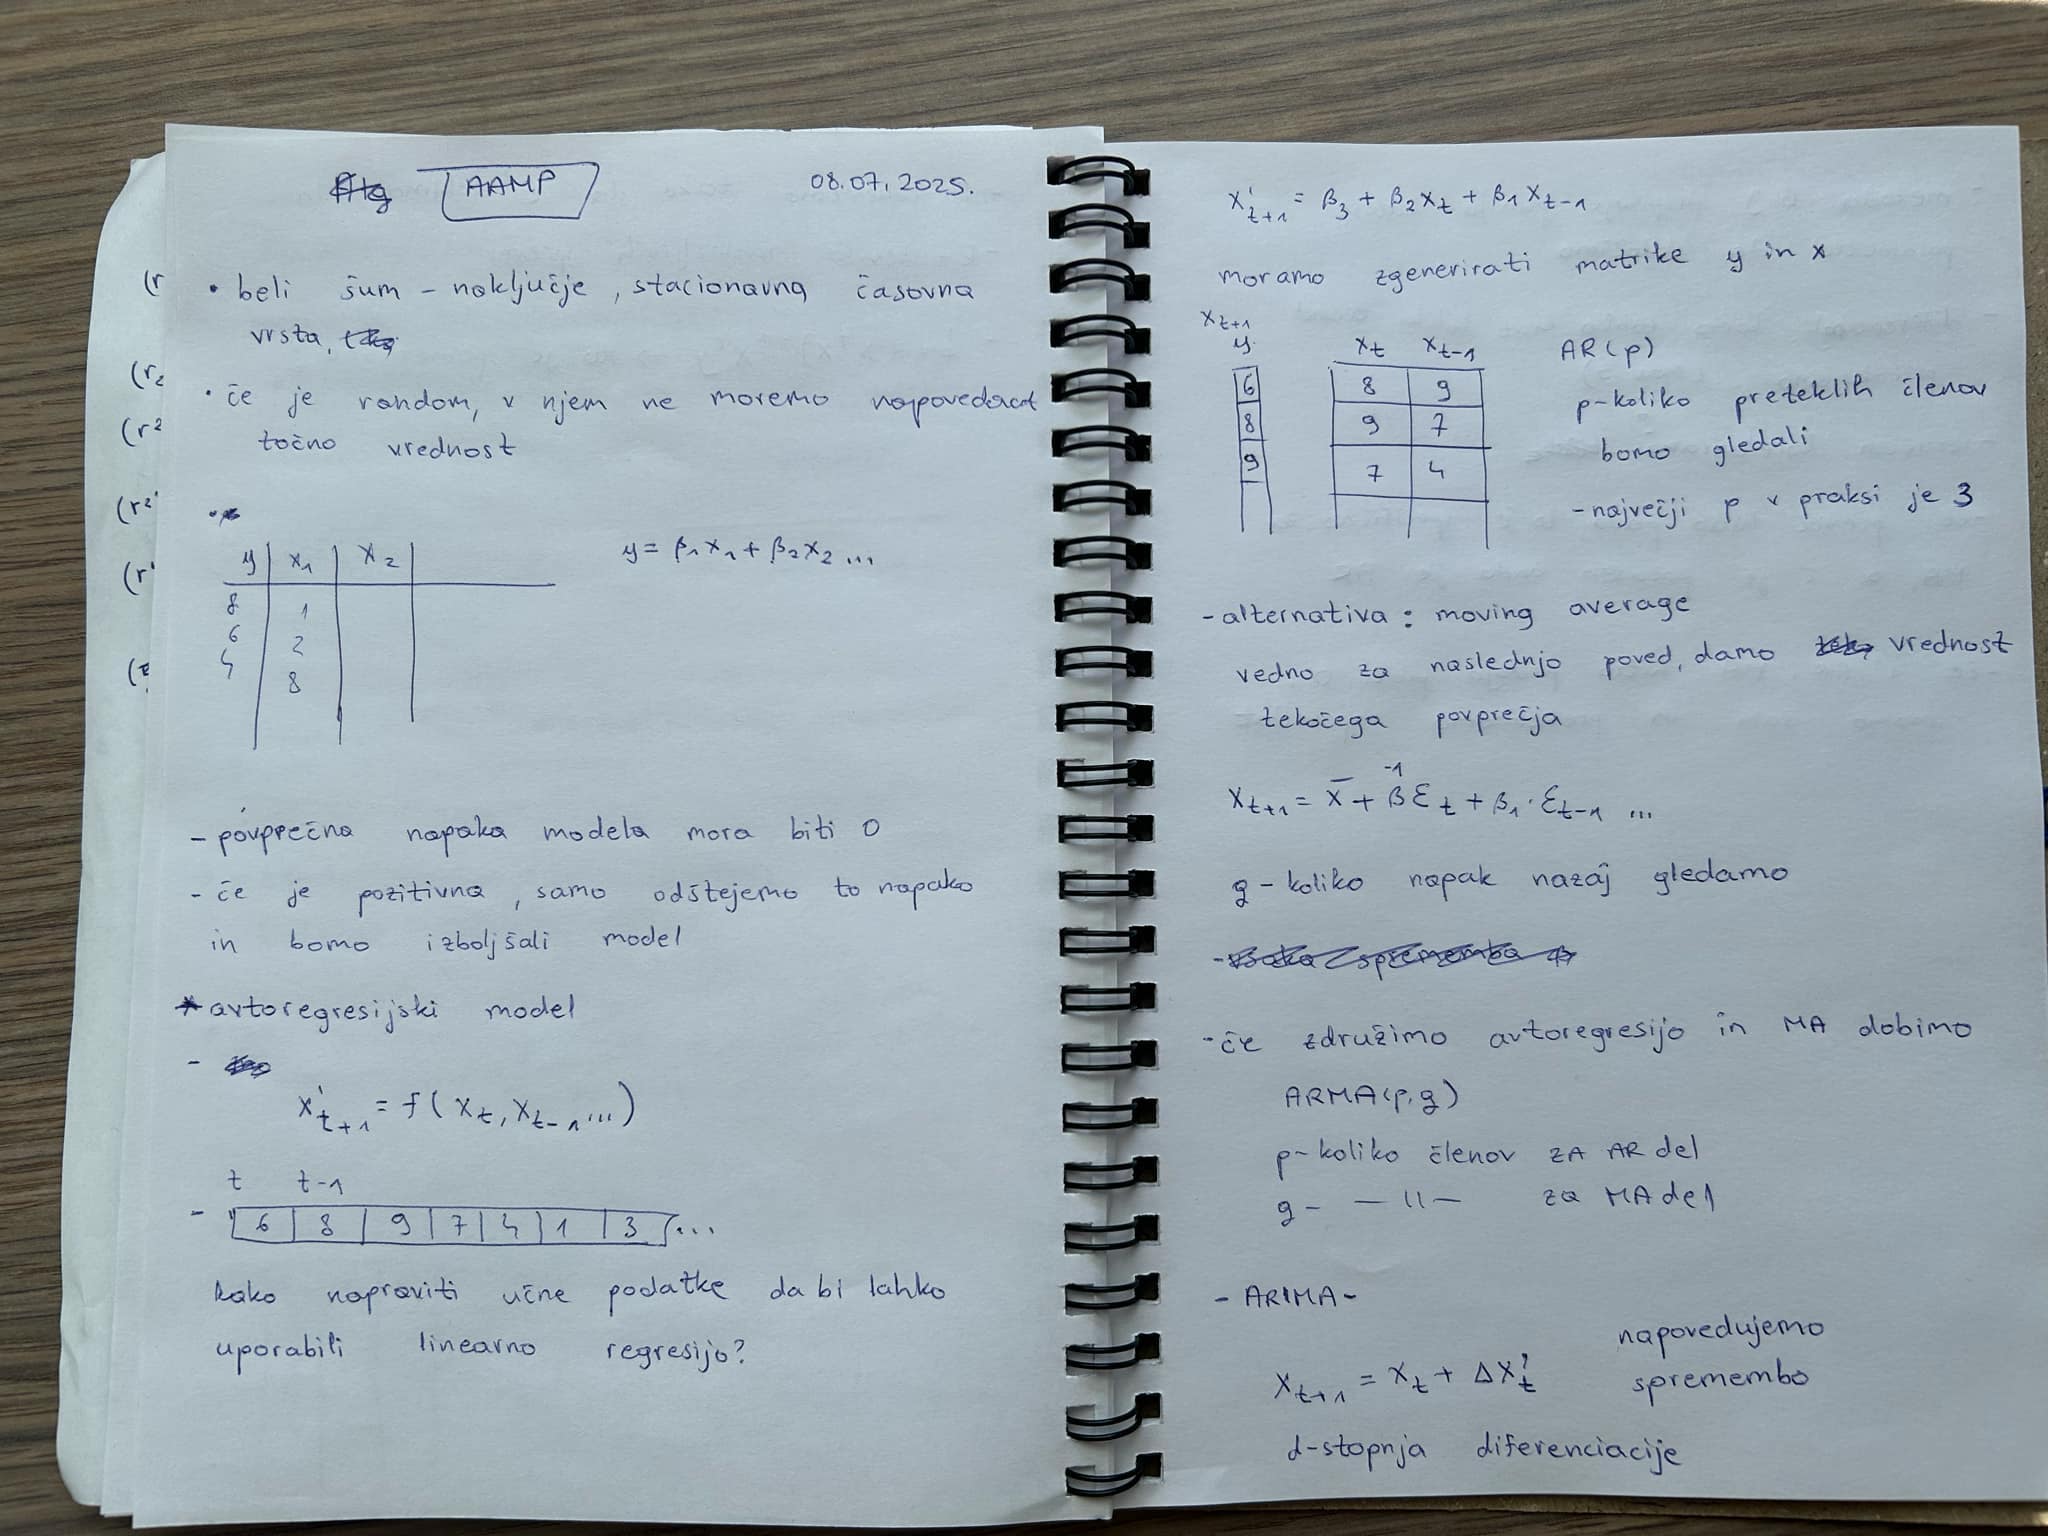 AAMP 08.07.2025.
• beli šum – naključje, stacionarna časovna
vrsta,
• če je random, v njem ne moremo napovedat
točno vrednost
y x₁ x₂
y = β₁x₁ + β₂x₂ ...
8 1
6 2
4 8
- povprečna napaka modela mora biti 0
- če je pozitivna, samo odštejemo to napako
in bomo izboljšali model
* avtoregresijski model
-
x'ₜ₊₁ = f(xₜ, xₜ₋₁ ...)
t t-1
- 6 8 9 7 4 1 3 ...
kako napraviti učne podatke da bi lahko
uporabili linearno regresijo?
x'ₜ₊₁ = β₃ + β₂xₜ + β₁xₜ₋₁
moramo zgenerirati matrike y in x
xₜ₊₁
y xₜ xₜ₋₁
6 8 9
8 9 7
9 7 4
AR(p)
p-koliko preteklih členov
bomo gledali
- največji p v praksi je 3
- alternativa: moving average
vedno za naslednjo poved, damo vrednost
tekočega povprečja
xₜ₊₁ = x̄ + β⁻¹εₜ + β₁·εₜ₋₁ ...
q - koliko napak nazaj gledamo
- če združimo avtoregresijo in MA dobimo
ARMA(p,q)
p- koliko členov ZA AR del
q- — 11 — za MA del
- ARIMA -
napovedujemo
xₜ₊₁ = xₜ + Δx'ₜ spremembo
d-stopnja diferenciacije